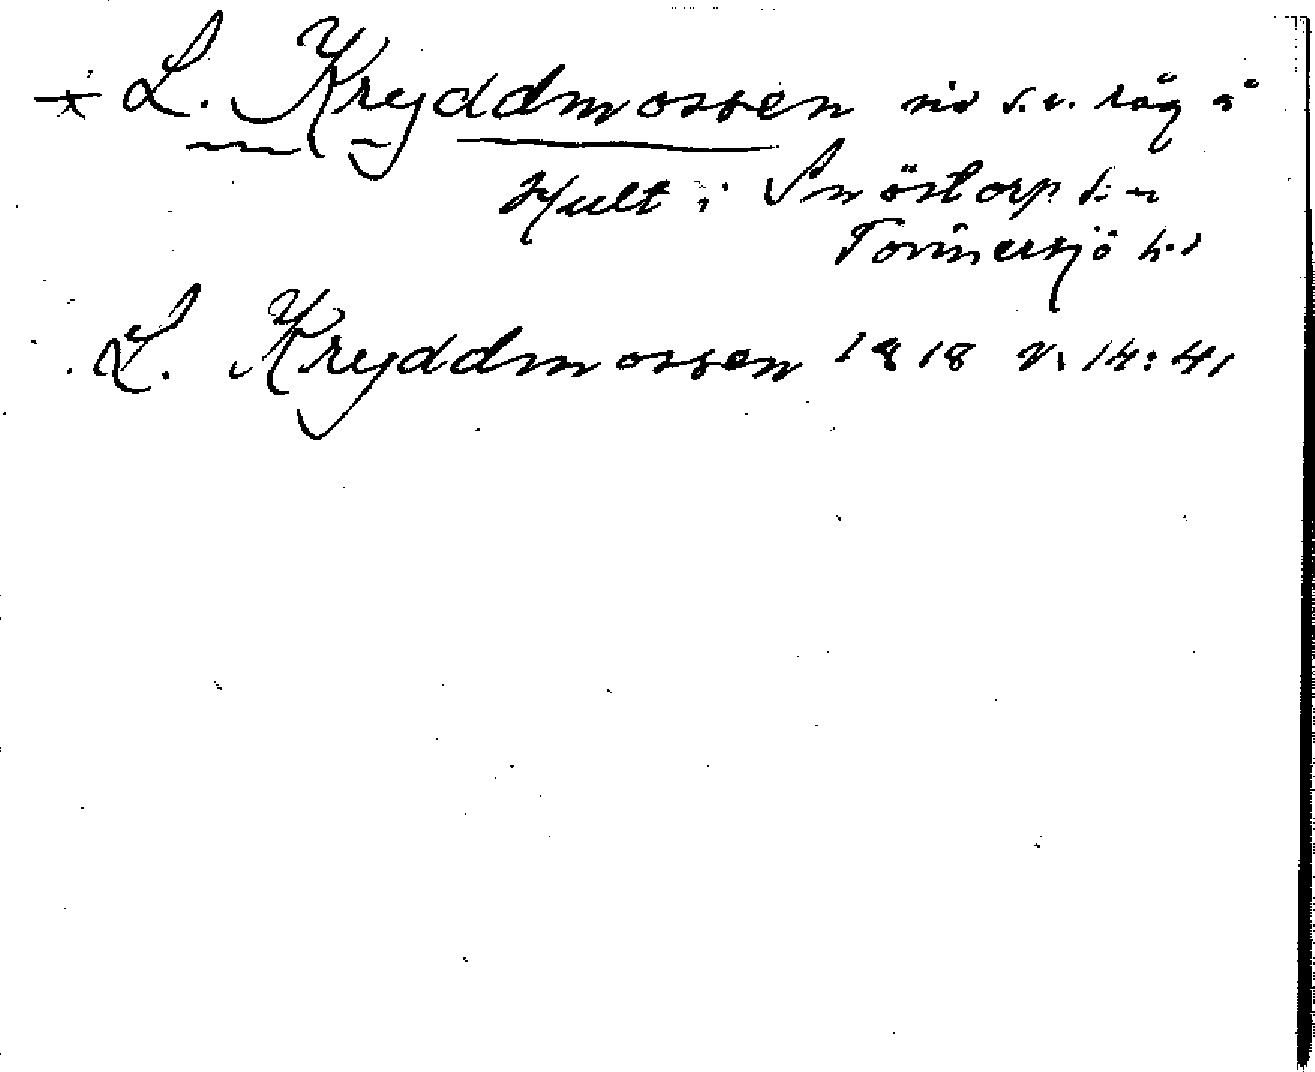 * L. Kryddmossen vid s.v. råg å
Hult i Snöstorp s:n
Tönnersjö h:d
L. Kryddmossen 1818 V. 14:41